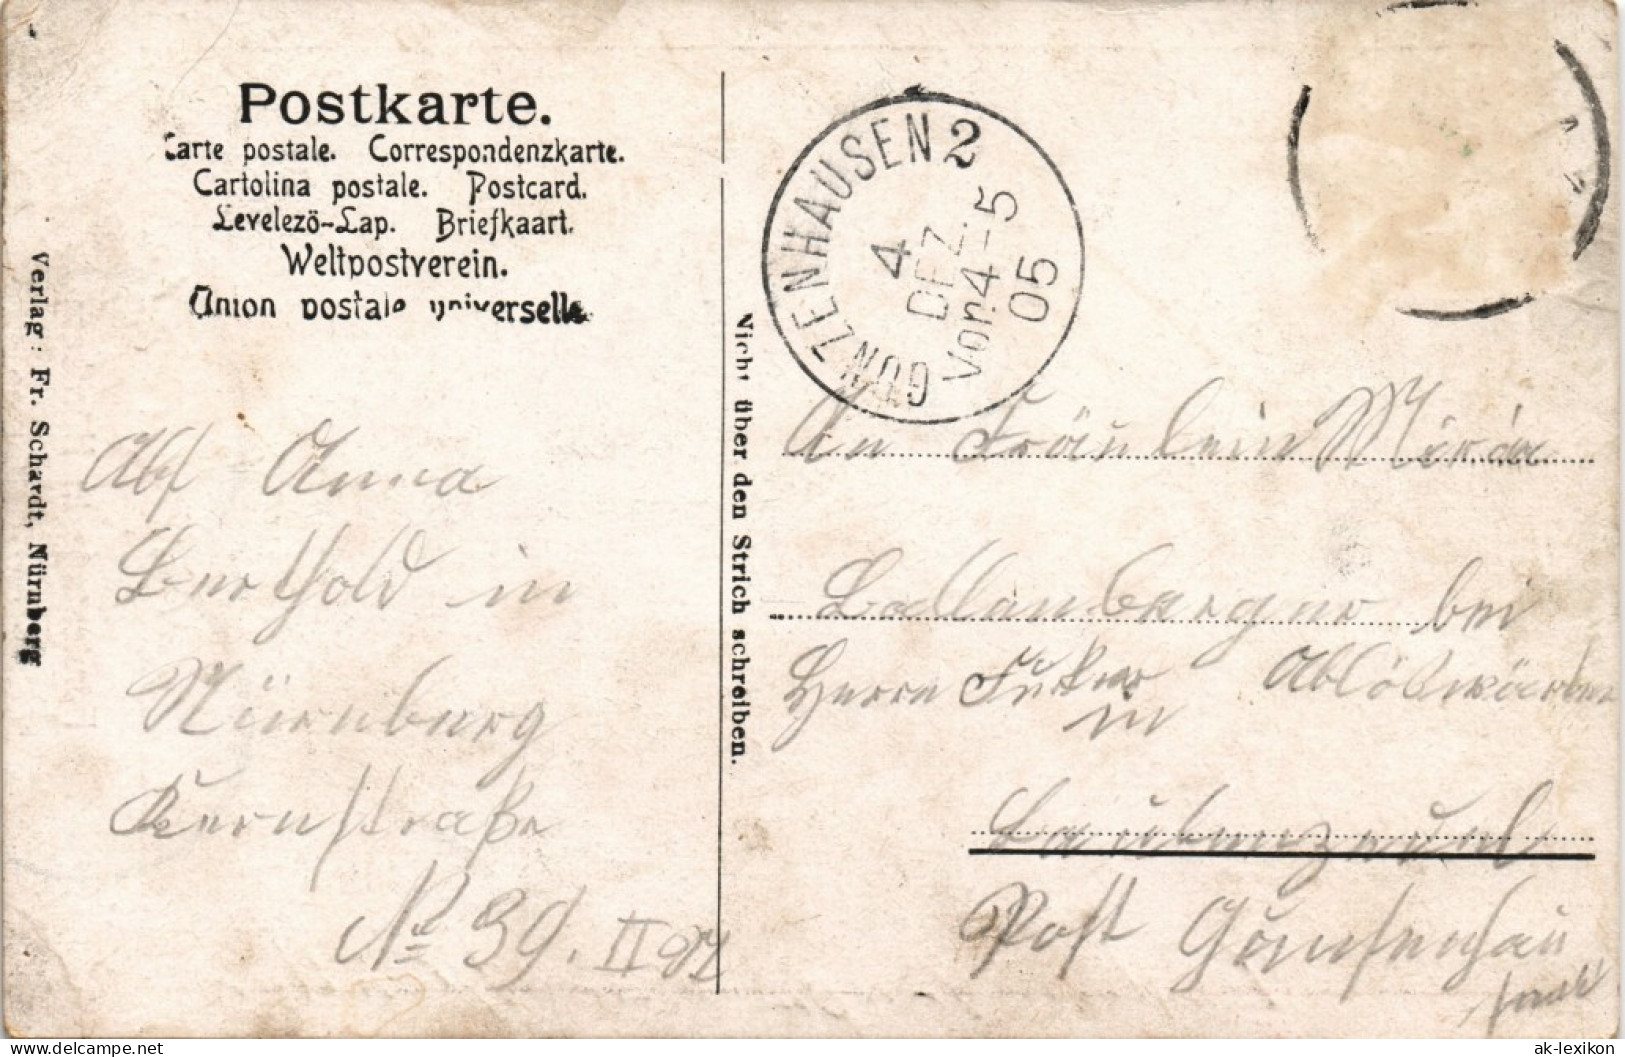 Postkarte.
Carte postale. Correspondenzkarte.
Cartolina postale. Postcard.
Levelezö-Lap. Briefkaart.
Weltpostverein.
Union postale universelle.
Verlag: Fr. Schardt, Nürnberg
Nicht über den Strich schreiben.
GUNZENHAUSEN 2
4
DEZ.
Vor. 4-5
05
Abs Anna
Berthold in
Nürnberg
Kernstraße
№ 39. II
An Fräulein Maria
Ballenberger bei
Herrn
in
Post
delcampe.net
ak-lexikon